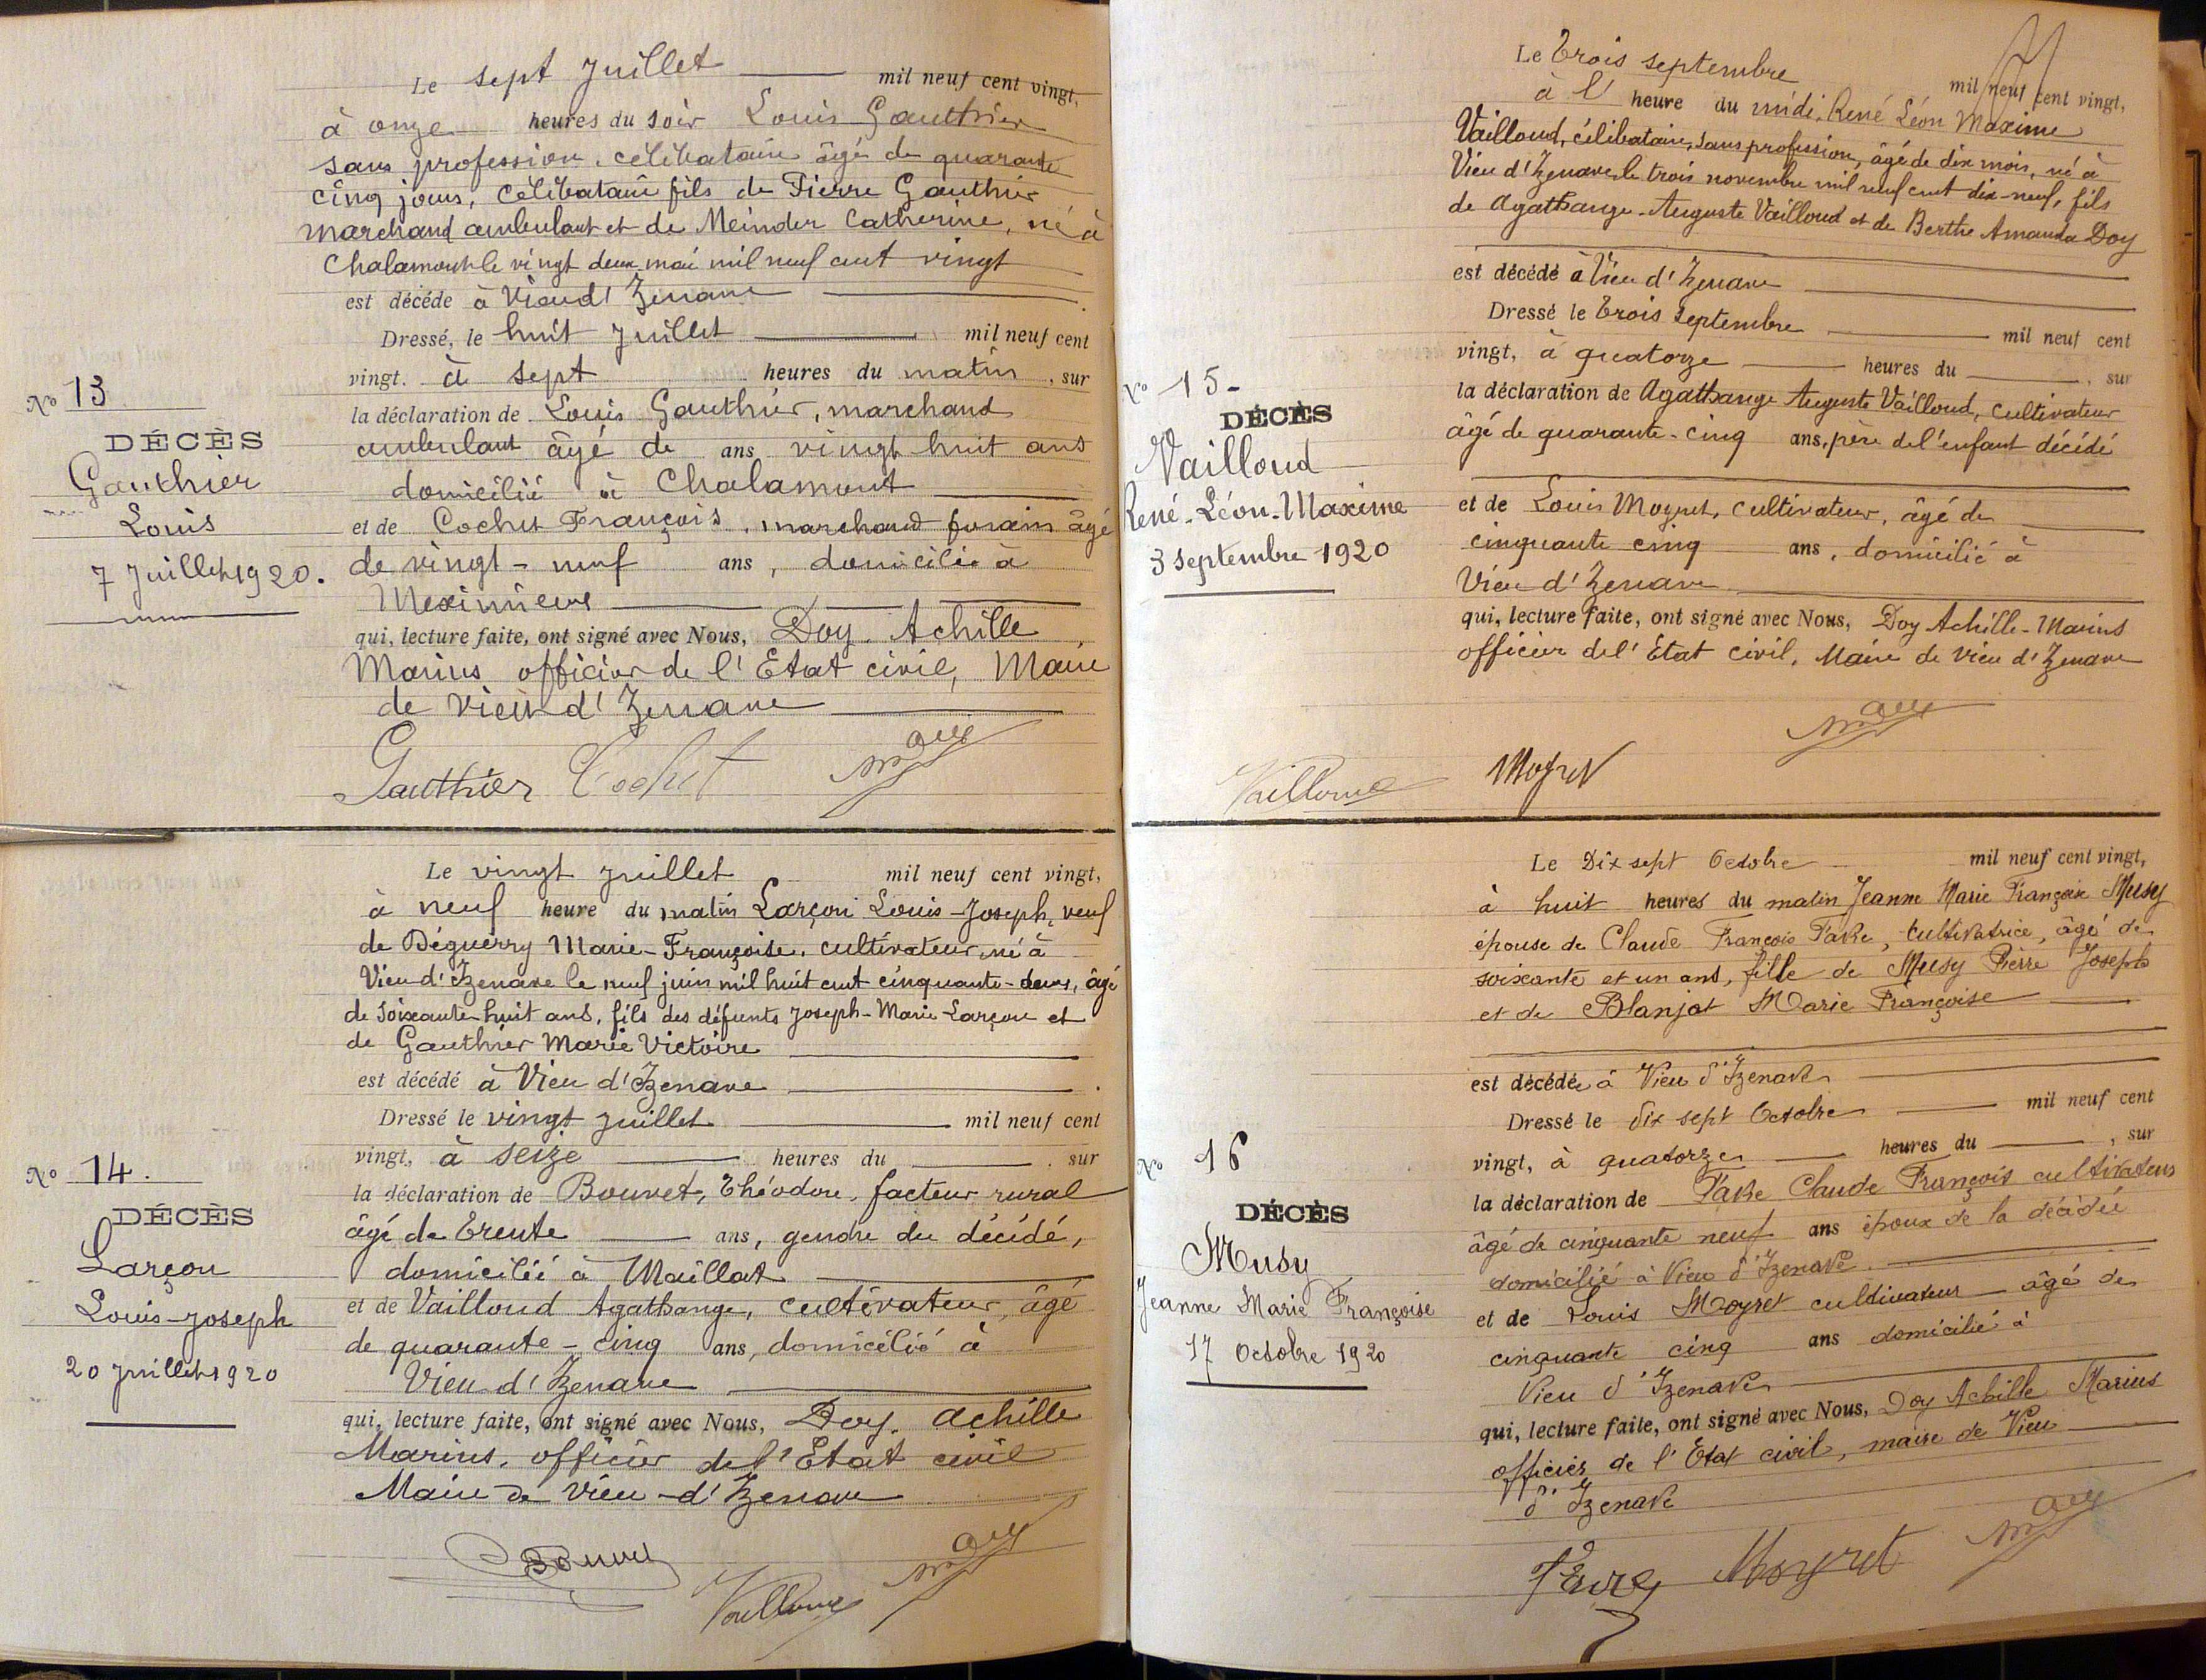 Le sept Juillet mil neuf cent vingt,
à onze heures du soir Louis Gauthier
sans profession, célibataire âgé de quarante
cinq jours, célibataire fils de Pierre Gauthier
marchand ambulant et de Meinder Catherine, né à
Chalamont le vingt deux mai mil neuf cent vingt
est décédé à Vieu d'Izenave
Dressé, le huit Juillet mil neuf cent
vingt. à sept heures du matin, sur
la déclaration de Louis Gauthier, marchand
ambulant âgé de ans vingt huit ans
domicilié à Chalamont
et de Cochet François, marchand forain âgé
de vingt-neuf ans, domicilié à
Meximieux
qui, lecture faite, ont signé avec Nous, Doy. Achille
Marius officier de l'Etat civil, Maire
de Vieu d'Izenave
Gauthier Cochet Doy
No 13
DÉCÈS
Gauthier
Louis
7 Juillet 1920.
Le vingt juillet mil neuf cent vingt,
à neuf heure du matin Larçon Louis-Joseph, veuf
de Déguerry Marie-Françoise, cultivateur, né à
Vieu d'Izenave le neuf juin mil huit cent cinquante-deux, âgé
de soixante-huit ans, fils des défunts Joseph-Marie Larçon et
de Gauthier Marie Victoire
est décédé à Vieu d'Izenave
Dressé le vingt juillet mil neuf cent
vingt, à seize heures du , sur
la déclaration de Bouvet, Théodore, facteur rural
âgé de trente ans, gendre du décédé,
domicilié à Maillat
et de Vailloud Agathange, cultivateur, âgé
de quarante-cinq ans, domicilié à
Vieu d'Izenave
qui, lecture faite, ont signé avec Nous, Doy. Achille
Marius, officier de l'Etat civil
Maire de Vieu-d'Izenave
Bouvet Vailloud Doy
No 14.
DÉCÈS
Larçon
Louis-Joseph
20 Juillet 1920
Le trois septembre mil neuf cent vingt,
à l' heure du midi, René Léon Maxime
Vailloud, célibataire, sans profession, âgé de dix mois, né à
Vieu d'Izenave le trois novembre mil neuf cent dix-neuf, fils
de Agathange-Auguste Vailloud et de Berthe Amanda Doy
est décédé à Vieu d'Izenave
Dressé le trois septembre mil neuf cent
vingt, à quatorze heures du , sur
la déclaration de Agathange Auguste Vailloud, cultivateur
âgé de quarante-cinq ans, père de l'enfant décédé
et de Louis Moyret, cultivateur, âgé de
cinquante cinq ans, domicilié à
Vieu d'Izenave
qui, lecture faite, ont signé avec Nous, Doy Achille-Marius
officier de l'Etat civil, Maire de Vieu d'Izenave
Doy
Vailloud Moyret
No 15-
DÉCÈS
Vailloud
René-Léon-Maxime
3 septembre 1920
Le Dix sept Octobre mil neuf cent vingt,
à huit heures du matin Jeanne Marie Françoise Musy
épouse de Claude François Favre, cultivatrice, âgé de
soixante et un ans, fille de Musy Pierre Joseph
et de Blanjat Marie Françoise
est décédée à Vieu d'Izenave
Dressé le dix sept Octobre mil neuf cent
vingt, à quatorze heures du , sur
la déclaration de Favre Claude François cultivateur
âgé de cinquante neuf ans époux de la décédée
domicilié à Vieu d'Izenave.
et de Louis Moyret cultivateur âgé de
cinquante cinq ans domicilié à
Vieu d'Izenave
qui, lecture faite, ont signé avec Nous, Doy Achille Marius
officier de l'Etat civil, maire de Vieu
d'Izenave
Favre Moyret Doy
No 16
DÉCÈS
Musy
Jeanne Marie Françoise
17 Octobre 1920